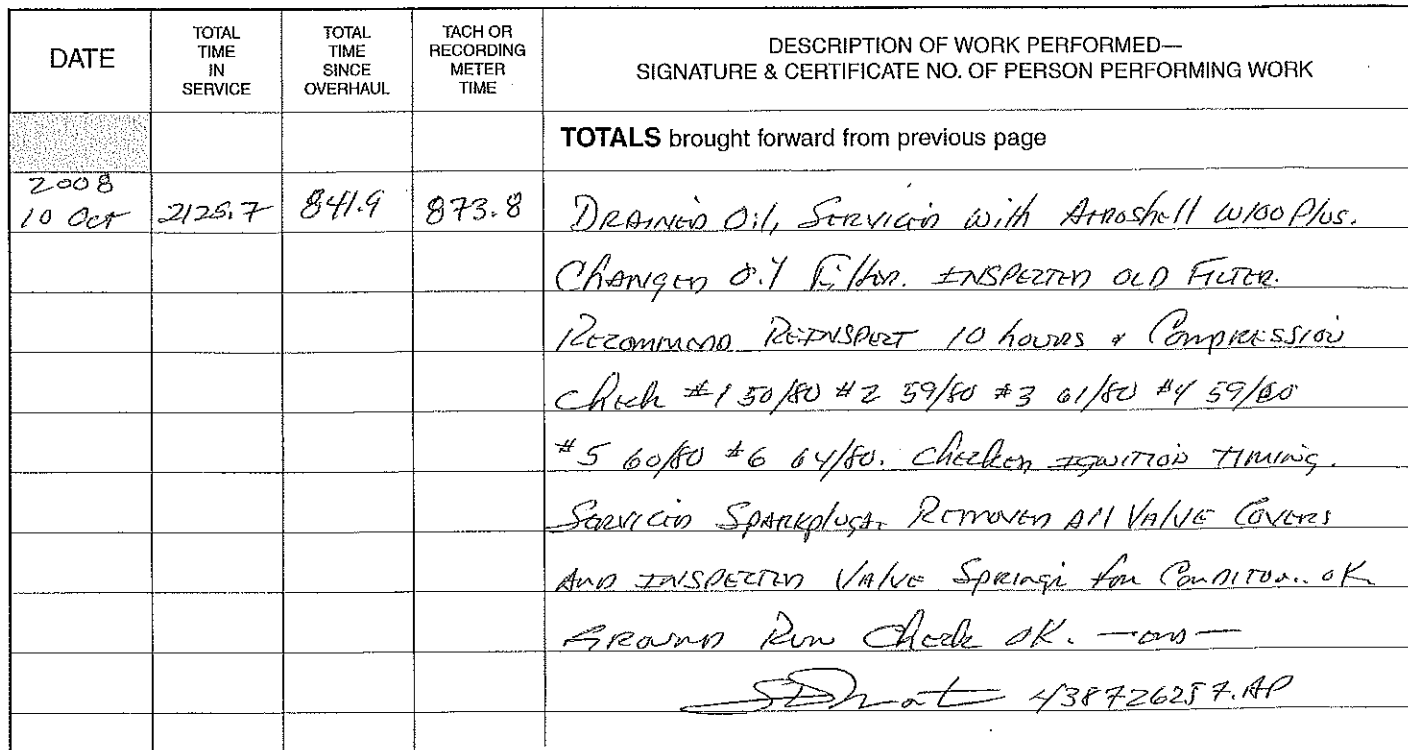 DATE
TOTAL TIME IN SERVICE
TOTAL TIME SINCE OVERHAUL
TACH OR RECORDING METER TIME
DESCRIPTION OF WORK PERFORMED—
SIGNATURE & CERTIFICATE NO. OF PERSON PERFORMING WORK
TOTALS brought forward from previous page
2008
10 Oct 2125.7 841.9 873.8 DRAINED Oil, SERVICED with AEROShell W100 Plus.
CHANGED Oil Filter. INSPECTED OLD FILTER.
RECOMMEND REINSPECT 10 hours & COMPRESSION
Check #1 50/80 #2 59/80 #3 61/80 #4 59/80
#5 60/80 #6 64/80. Checked IGNITION TIMING.
SERVICED SPARKplugs. REMOVED All VALVE COVERS
AND INSPECTED VALVE Springs for CONDITON.. OK
GROUND Run Check OK. —END—
438726257.AP